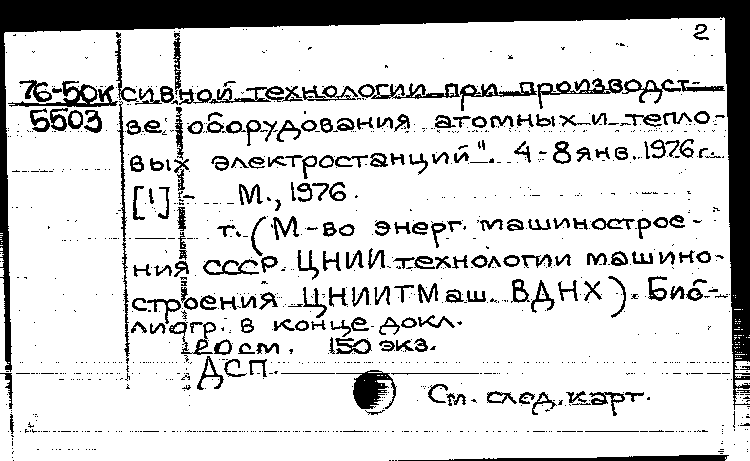 2
76-50к сивной технологии при производст-
5503 ве оборудования атомных и тепло-
вых электростанций". 4-8 янв. 1976 г.
[1] - М., 1976.
т. (М-во энерг. машинострое-
ния СССР. ЦНИИ технологии машино-
строения ЦНИИТМаш. ВДНХ). Биб-
лиогр. в конце докл.
20 см. 150 экз.
ДСП.
См. след. карт.